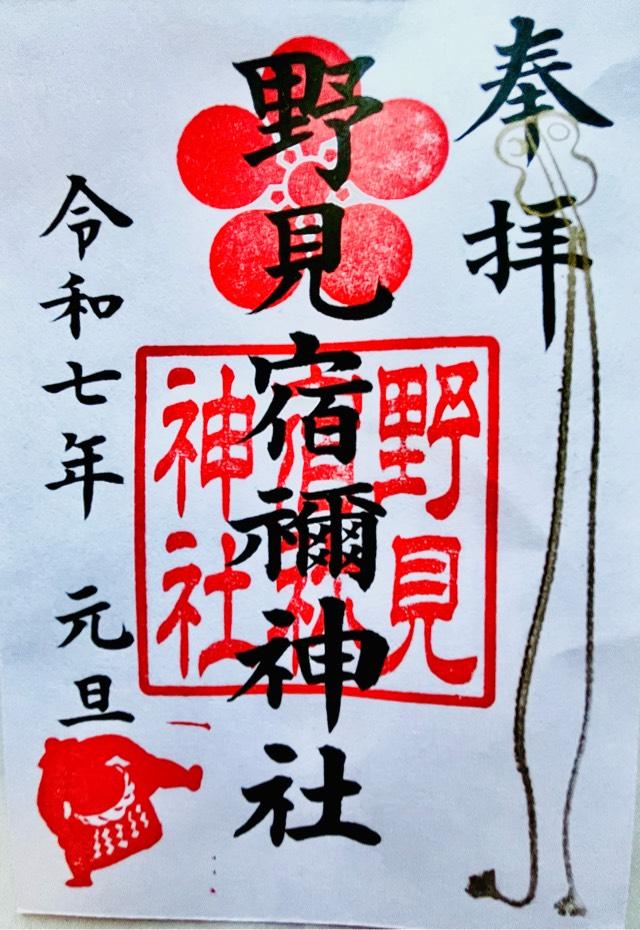 奉拝
野見宿禰神社
野見宿禰神社
令和七年 元旦